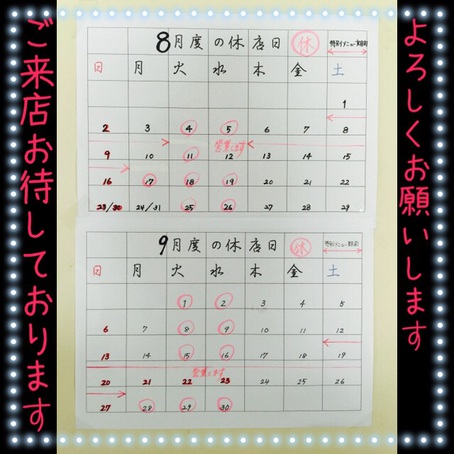 よろしくお願いします
8月度の休店日 休
日 月 火 水 木 金 土
1
2 3 4 5 6 7 8
営業します
9 10 11 12 13 14 15
16 17 18 19 20 21 22
23/30 24/31 25 26 27 28 29
9月度の休店日 休
日 月 火 水 木 金 土
1 2 3 4 5
6 7 8 9 10 11 12
13 14 15 16 17 18 19
営業します
20 21 22 23 24 25 26
27 28 29 30
ご来店お待ちしております